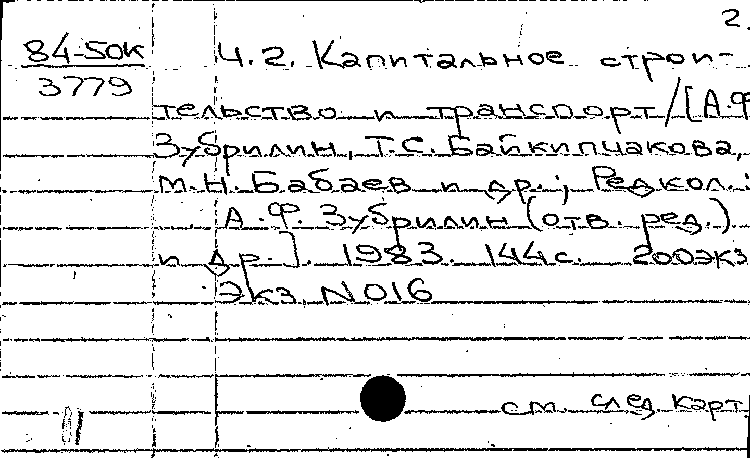 2.
84-50к Ч.2. Капитальное строи-
3779
тельство и транспорт/[А.Ф
Зубрилин, Т.С. Байкипчакова,
М.Н. Бабаев и др.; Редкол.:
А.Ф. Зубрилин (отв. ред.)
и др.]. 1983. 144с. 200экз
Экз. N016
см. след карт